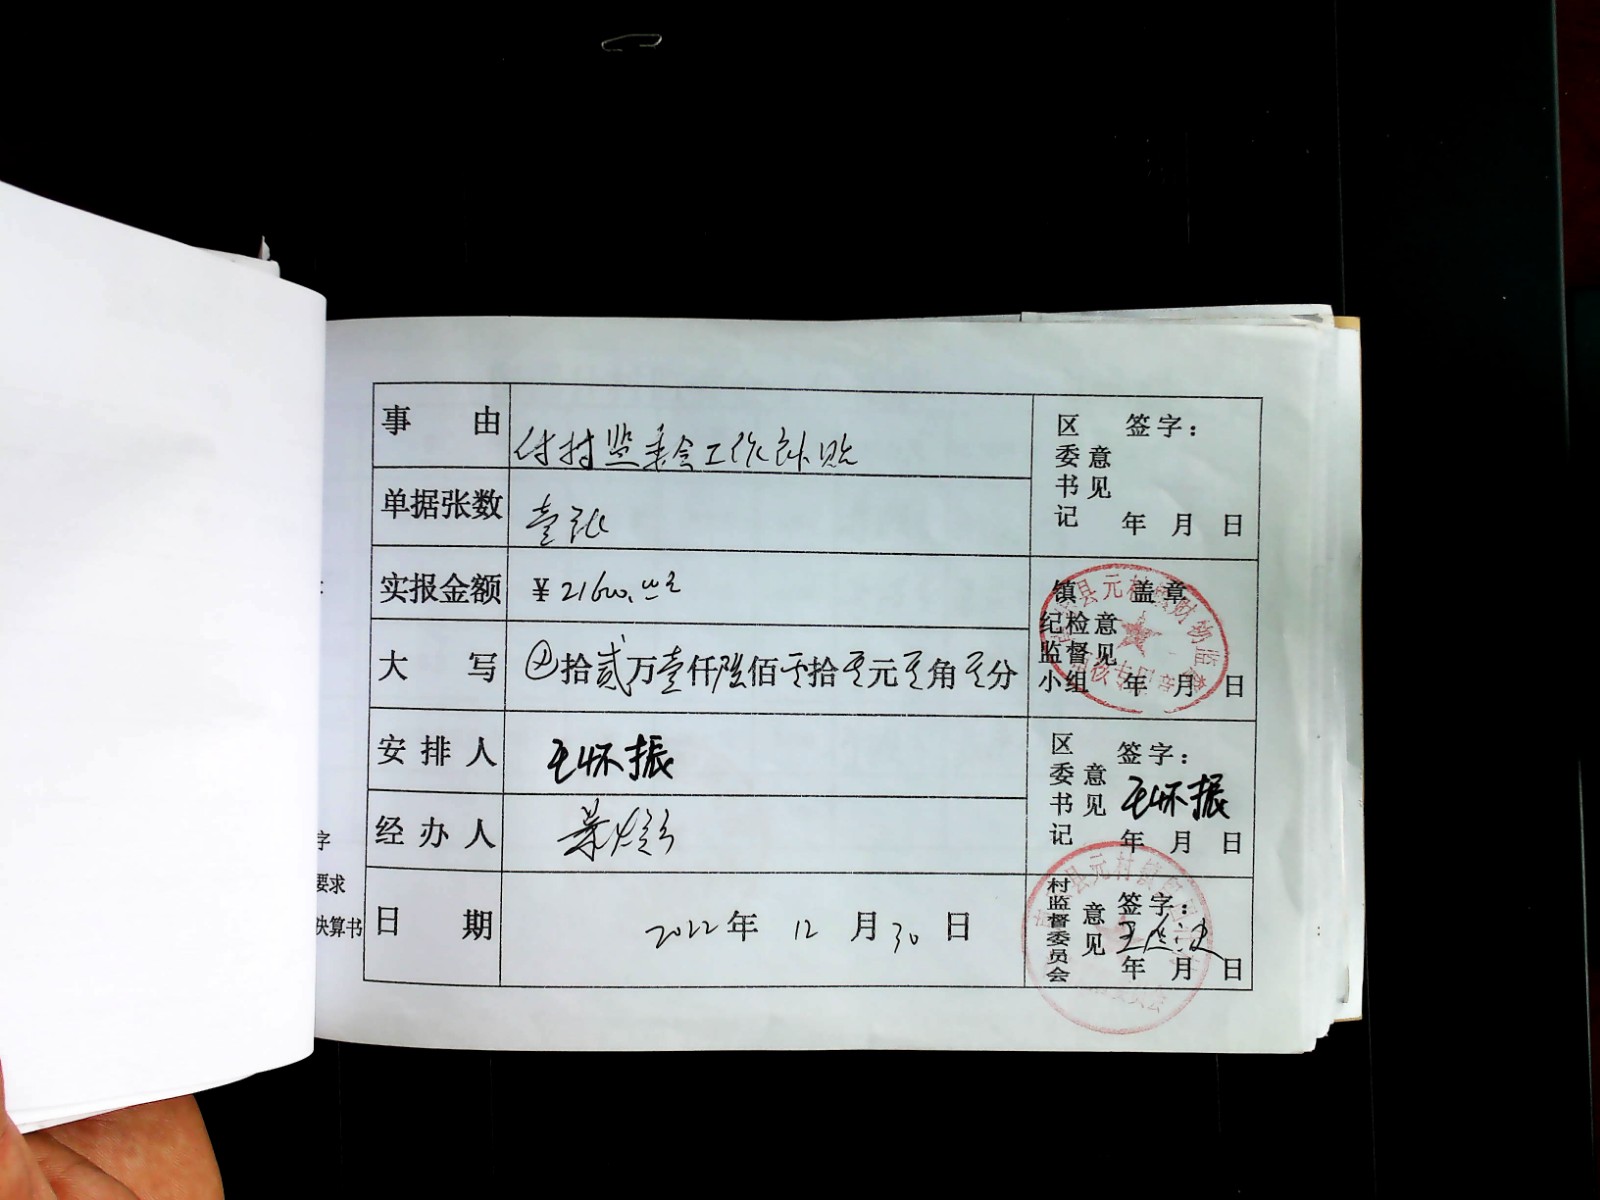 事由 付村监委会工作补贴
单据张数 壹张
实报金额 ¥21600.00元
大写 拾贰万壹仟陆佰零拾零元零角零分
安排人 王怀振
经办人
日期 2022年12月30日
区委书记意见 签字：
年 月 日
镇纪检监督小组意见 盖章
年 月 日
县元村镇财务监督
区委书记意见 签字：
王怀振
年 月 日
村监督委员会意见 签字：
年 月 日
县元村镇
字
要求
决算书